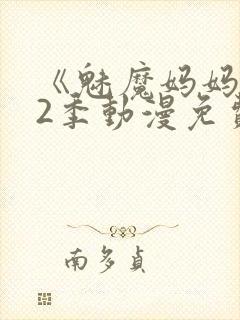 《魅魔妈妈
2季動漫免
南多貞